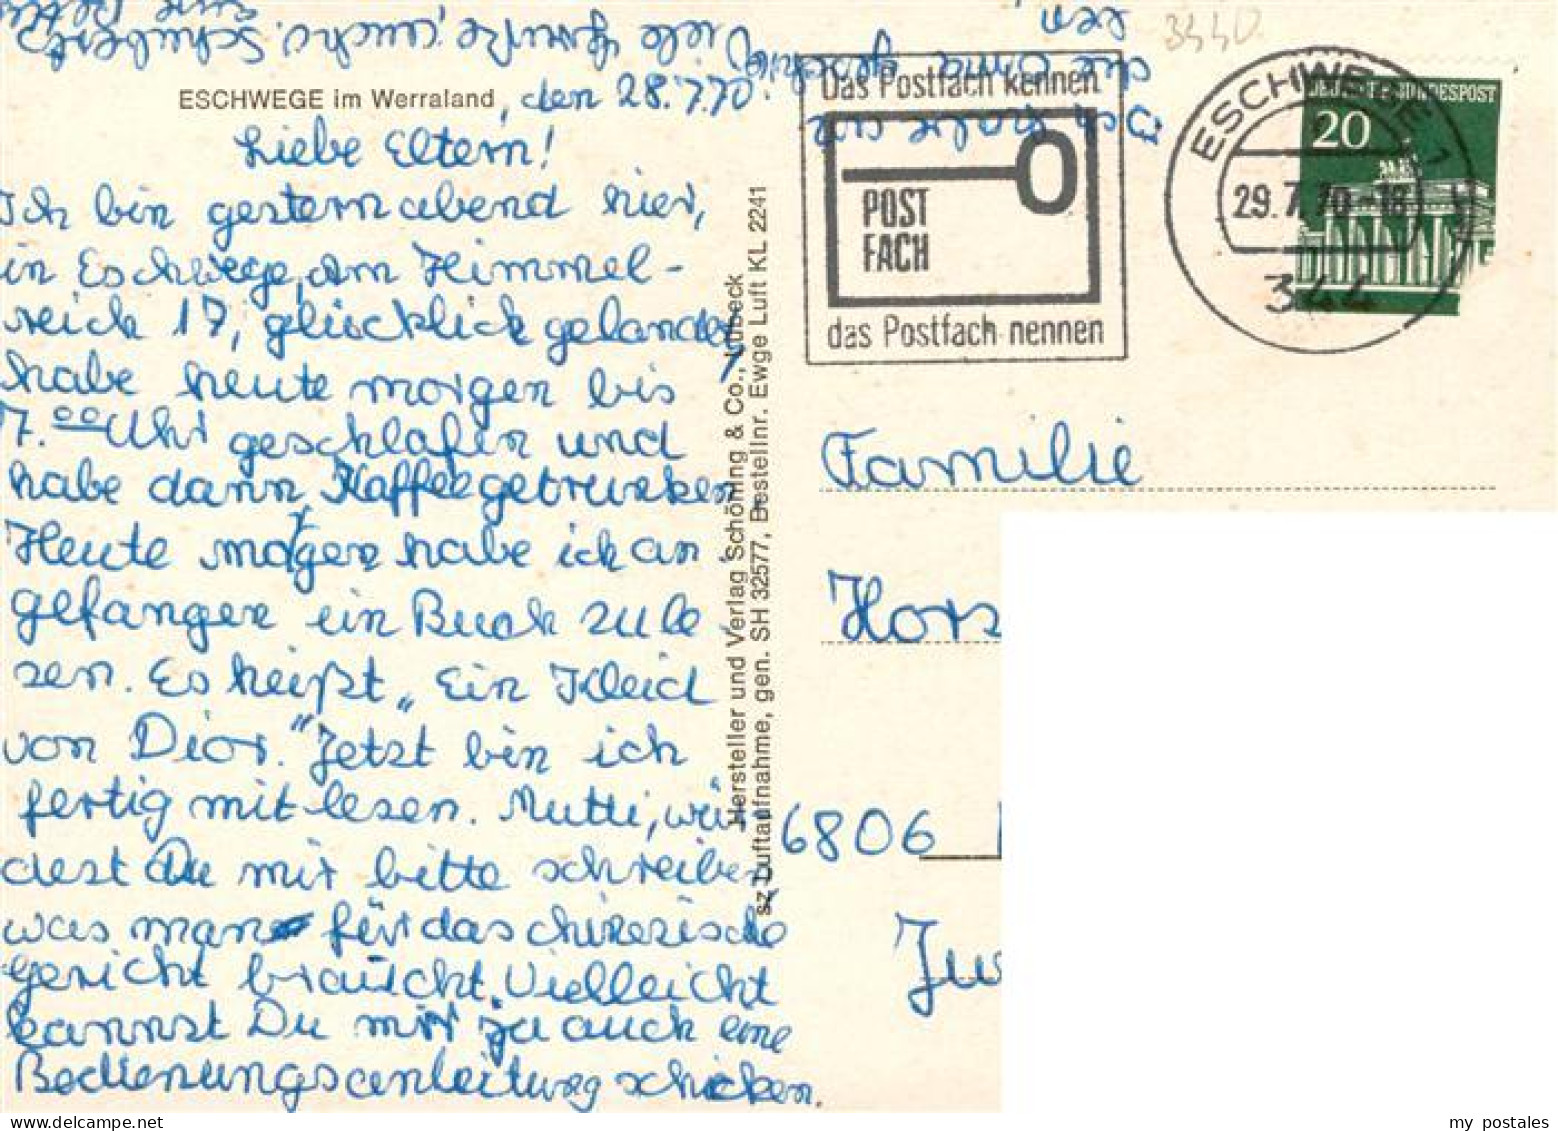 ESCHWEGE im Werraland, den 28.7.70.
Liebe Eltern!
Ich bin gestern abend hier,
in Eschwege, Am Himmel-
reich 17, glücklich gelandet,
habe heute morgen bis
7.00 Uhr geschlafen und
habe dann Kaffee getrunken.
Heute morgen habe ich an
gefangen ein Buch zu le-
sen. Es heißt „Ein Kleid
von Dior." Jetzt bin ich
fertig mit lesen. Mutti, wür
dest Du mir bitte schreiben,
was man für das chinesische
Gericht braucht. Vielleicht
kannst Du mir ja auch eine
Bedienungsanleitung schicken.
Viele Grüße, auch a. Schubert
Hersteller und Verlag Schöning & Co., Lübeck
SZ Luftaufnahme, gen. SH 32577, Bestellnr. Ewge Luft KL 2241
Das Postfach kennen
POST
FACH
das Postfach nennen
3440
ESCHWEGE 1
29.7.70-18
344
DEUTSCHE BUNDESPOST
20
Familie
Hors
6806
my postales